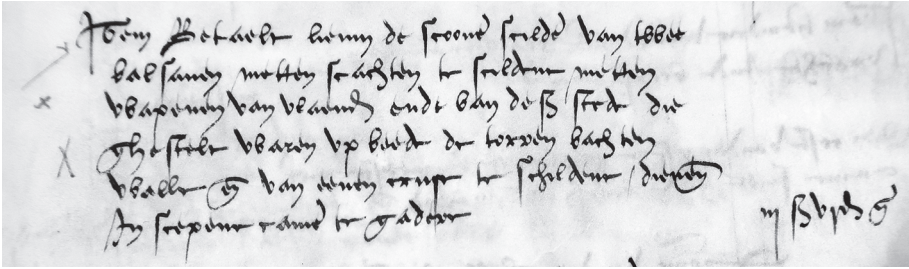 Item Betaelt lieuin de scoone scilde van twee
balsanen metten scachten te scildene metten
wapenen van vlaend ende van deß stede die
ghestelt waren vp beede de torren bachten
walle en van eenen cruse te schildene dienen
In scepene came te gadere
iij ß vj d g